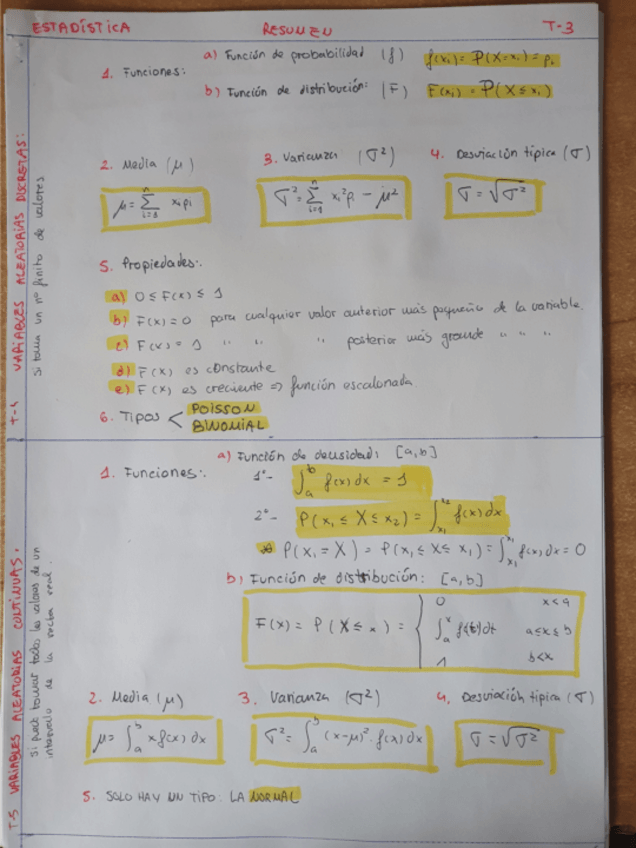 ESTADÍSTICA RESUMEN T-3
T-4 VARIABLES ALEATORIAS DISCRETAS:
si toma un nº finito de valores
1. Funciones:
a) Función de probabilidad (f) f(xᵢ) = P(X=xᵢ) = pᵢ
b) Función de distribución: (F) F(xᵢ) = P(X ≤ xᵢ)
2. Media (μ) 3. Varianza (σ²) 4. Desviación típica (σ)
μ = ∑ᵢ₌₁ⁿ xᵢ pᵢ σ² = ∑ᵢ₌₁ⁿ xᵢ² pᵢ - μ² σ = √σ²
5. Propiedades:.
a) 0 ≤ F(x) ≤ 1
b) F(x) = 0 para cualquier valor anterior más pequeño de la variable.
c) F(x) = 1 " " " posterior más grande " " "
d) F(x) es constante
e) F(x) es creciente => función escalonada.
6. Tipos < POISSON
BINOMIAL
T-5 VARIABLES ALEATORIAS CONTINUAS.
si puede tomar todos los valores de un
intervalo de la recta real.
1. Funciones:.
a) Función de densidad: [a,b]
1º- ∫ₐᵇ f(x) dx = 1
2º- P(x₁ ≤ X ≤ x₂) = ∫ₓ₁ˣ² f(x) dx
P(x₁ = X) = P(x₁ ≤ X ≤ x₁) = ∫ₓ₁ˣ¹ f(x) dx = 0
b) Función de distribución: [a,b]
F(x) = P(X ≤ x) = { 0 x<a
∫ₐˣ f(t) dt a≤x≤b
1 b<x
2. Media (μ) 3. Varianza (σ²) 4. Desviación típica (σ)
μ = ∫ₐᵇ x f(x) dx σ² = ∫ₐᵇ (x-μ)² · f(x) dx σ = √σ²
5. SOLO HAY UN TIPO: LA NORMAL